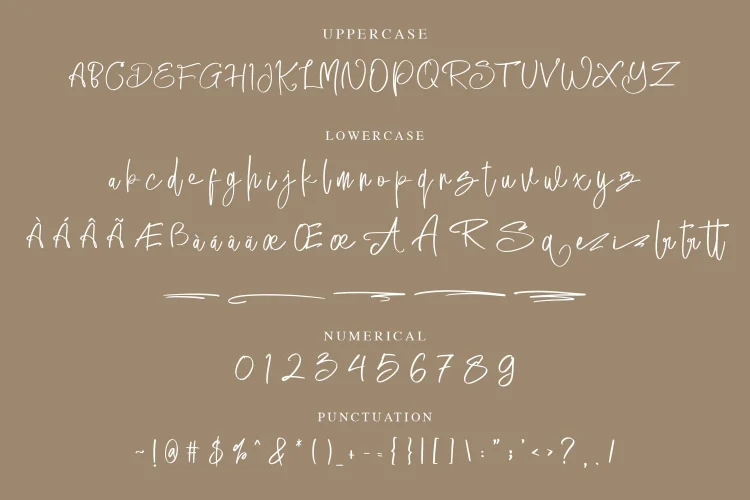 UPPERCASE
ABCDEFGHIJKLMNOPQRSTUVWXYZ
LOWERCASE
abcdefghijklmnopqrstuvwxyz
ÀÁÂÃÆBàáâãæŒœAARSqezizlrtrtt
NUMERICAL
0123456789
PUNCTUATION
~!@#$%^&*()_+-={}|[]\:";'<>?,./